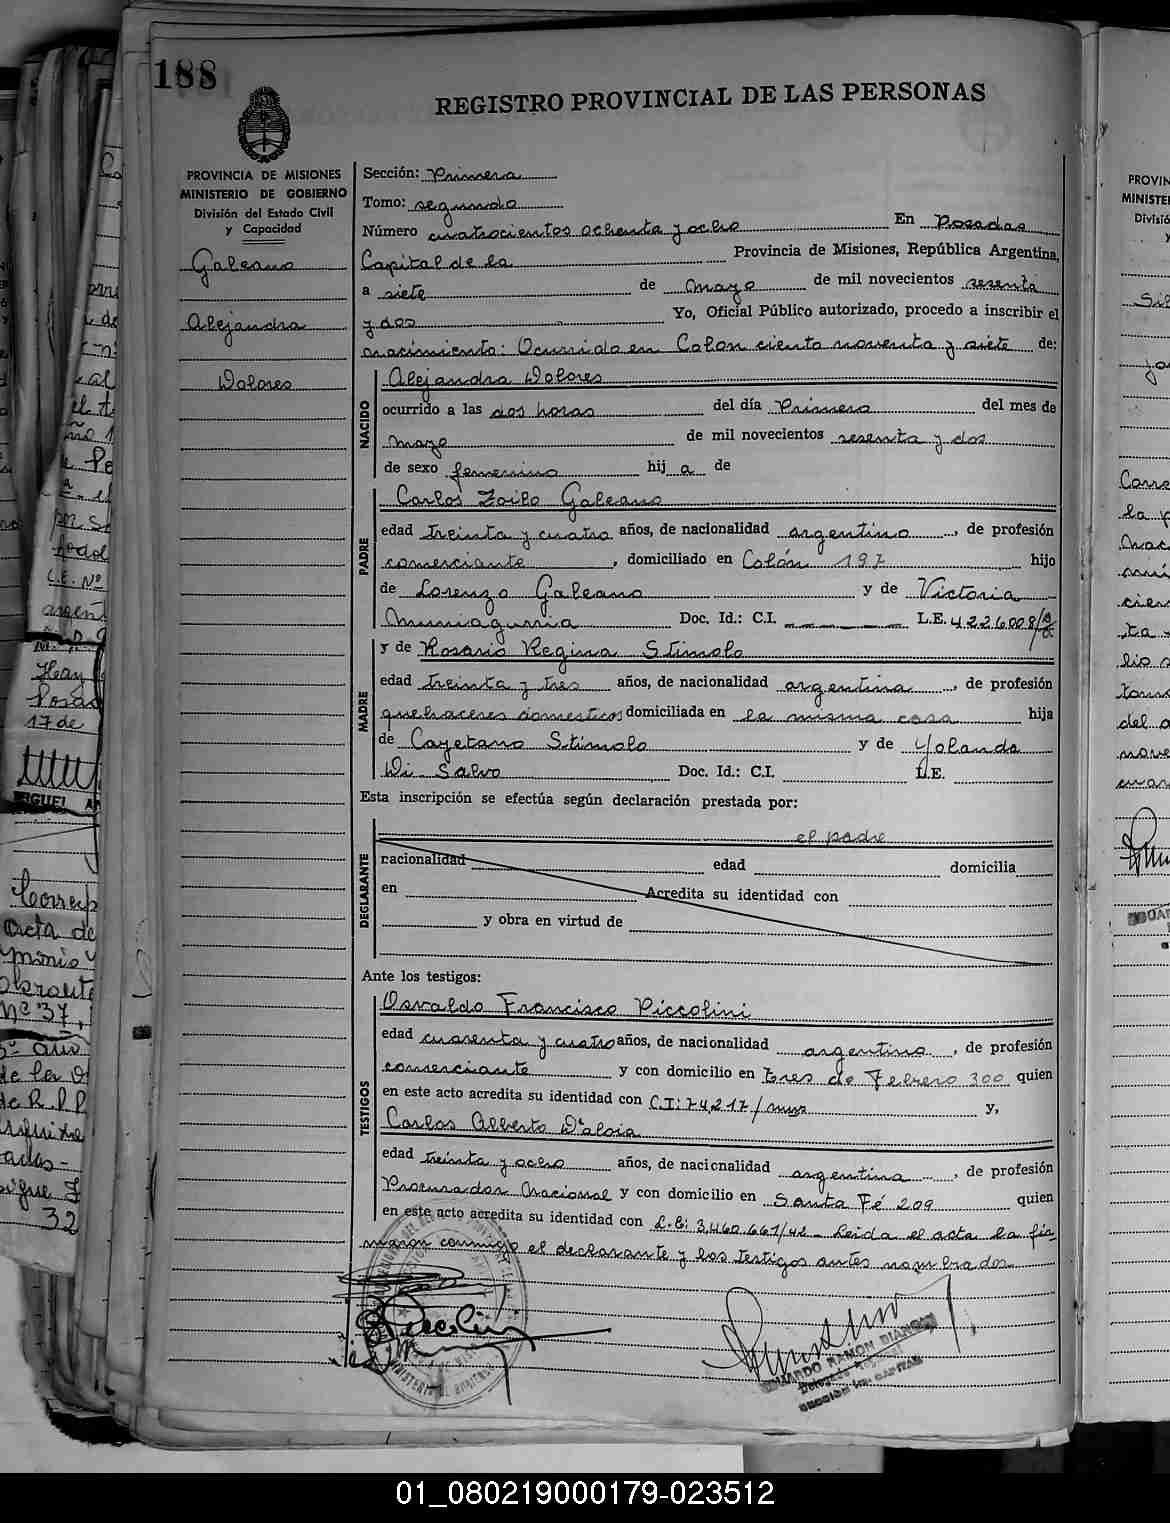 188
REGISTRO PROVINCIAL DE LAS PERSONAS
PROVINCIA DE MISIONES
MINISTERIO DE GOBIERNO
División del Estado Civil
y Capacidad
Galeano
Alejandra
Dolores
Sección: Primera
Tomo: segundo
Número cuatrocientos ochenta y ocho En Posadas
Capital de la Provincia de Misiones, República Argentina,
a siete de mayo de mil novecientos sesenta
y dos Yo, Oficial Público autorizado, procedo a inscribir el
nacimiento: Ocurrido en Colon ciento noventa y siete de:
NACIDO
Alejandra Dolores
ocurrido a las dos horas del día Primero del mes de
mayo de mil novecientos sesenta y dos
de sexo femenino hij a de
PADRE
Carlos Zoilo Galeano
edad treinta y cuatro años, de nacionalidad argentino, de profesión
comerciante, domiciliado en Colón 197 hijo
de Lorenzo Galeano y de Victoria
Muniagurria Doc. Id.: C.I. L.E. 4226008/
MADRE
y de Rosario Regina Stimolo
edad treinta y tres años, de nacionalidad argentina, de profesión
quehaceres domesticos domiciliada en la misma casa hija
de Cayetano Stimolo y de Yolanda
Di Salvo Doc. Id.: C.I. L.E.
Esta inscripción se efectúa según declaración prestada por:
DECLARANTE
el padre
nacionalidad edad domicilia
en Acredita su identidad con
y obra en virtud de
Ante los testigos:
TESTIGOS
Osvaldo Francisco Piccolini
edad cuarenta y cuatro años, de nacionalidad argentino, de profesión
comerciante y con domicilio en tres de Febrero 300 quien
en este acto acredita su identidad con C.I: 74,217/ y,
Carlos Alberto D'aloia
edad treinta y ocho años, de nacionalidad argentina, de profesión
Procurador Nacional y con domicilio en Santa Fé 209 quien
en este acto acredita su identidad con L.E: 3,460,661/42 - Leida el acta la fir
maron conmigo el declarante y los testigos antes nombrados
EDUARDO RAMON
01_080219000179-023512